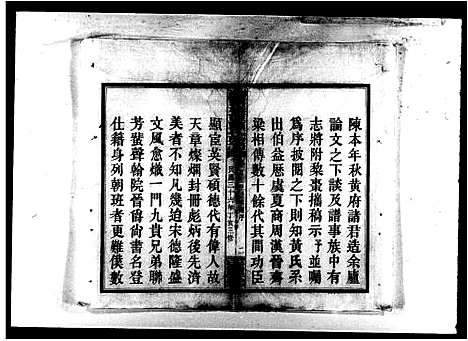 陳本年秋黃府諸君造余廬
論文之下談及譜事族中有
志將附棃棗攜稿示予並囑
爲序披閱之下則知黃氏系
出伯益歷虞夏商周漢晉齊
梁相傳數十餘代其間功臣
顯宦英賢碩德代有偉人故
天章燦爛封冊彪炳後先濟
美者不知凡幾迨宋德隆盛
文風愈熾一門九貴兄弟聯
芳蜚聲翰院晉爵尚書名登
仕籍身列朝班者更難僕數